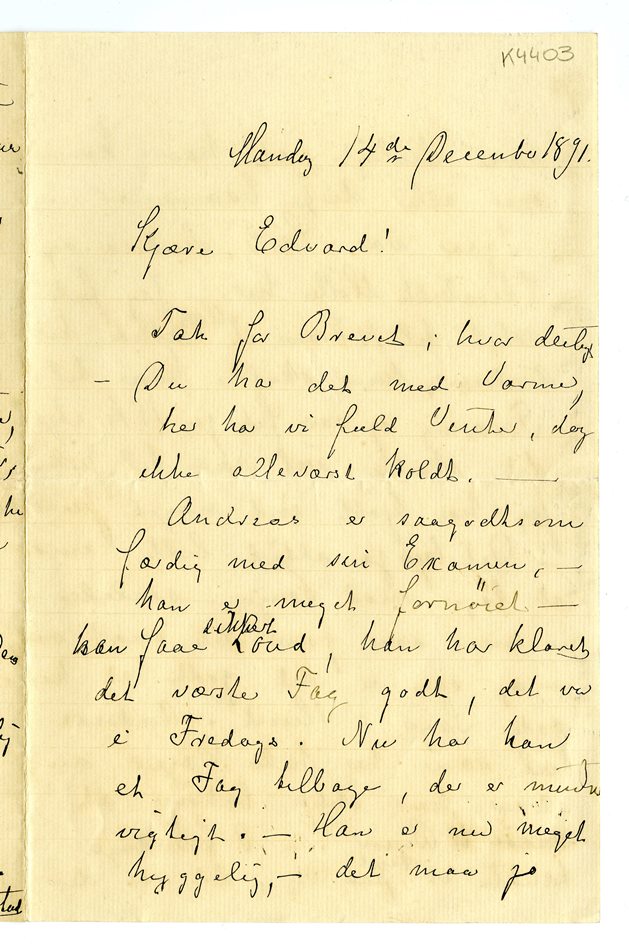 K4403
Mandag 14de Decembr 1891.
Kjære Edvard!
Tak for Brevet, hvor deiligt
– Du ha det med Varme,
her ha vi fuld Vinter, dog
ikke alleværst koldt. —
Andreas er saagodtsom
færdig med sin Examen, –
han er meget fornöiet –
han faae sikkert Laud, han har klaret
det værste Fag godt, det var
i Fredags. Nu har han
et Fag tilbage, der er mindre
vigtigt. – Han er nu meget
hyggelig, – det maa jo